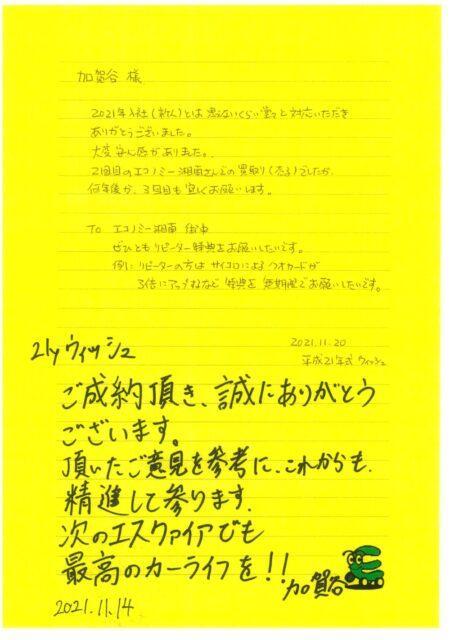 加賀谷 様
2021年入社(新人)とは思えないくらい堂々と対応いただき
ありがとうございました。
大変安心感がありました。
2回目のエコノミー湘南さんでの買取り(売る)でしたが、
何年後か、3回目も宜しくお願いします。
To エコノミー湘南 御中
ぜひともリピーター特典をお願いしたいです。
例) リピーターの方は サイコロによるクオカードが
3倍にアップするなど 特典を 長期間でお願いしたいです。
2021.11.20
平成21年式 ウィッシュ
21yウィッシュ
ご成約頂き、誠にありがとう
ございます。
頂いたご意見を参考に、これからも、
精進して参ります。
次のエスクァイアでも
最高のカーライフを!!
加賀谷
2021.11.14